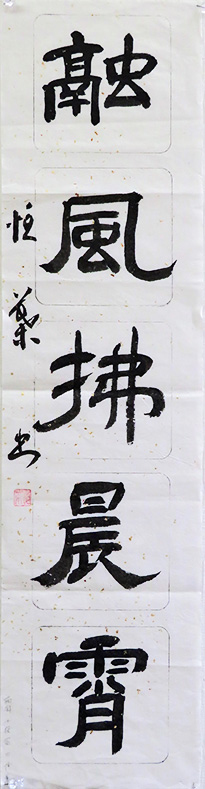 融風拂晨霄
恒業书